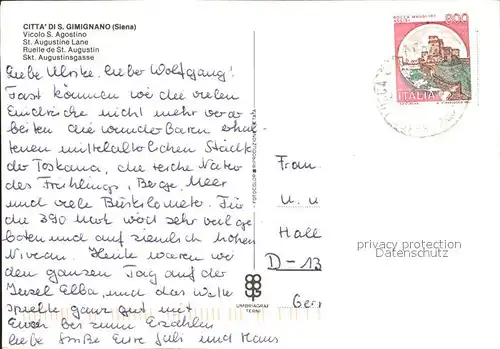 CITTA' DI S. GIMIGNANO (Siena)
Vicolo S. Agostino
St. Augustine Lane
Ruelle de St. Augustin
Skt. Augustinsgasse
liebe Ulrike, lieber Wolfgang!
Fast können wir die vielen
Eindrücke nicht mehr verar
beiten die wunderbaren erhal
tenen mittelalterlichen Städte
der Toskana, die reiche Natur
des Frühlings, Berge, Meer
und viele Buskilometer. Für
die 390 Mark wird sehr viel ge
boten und auf ziemlich hohem
Niveau. Heute waren wir
den ganzen Tag auf der
Insel Elba, und das Wetter
spielte ganz gut mit
bis zum Erzählen
liebe Grüße Eure Juli und Hans
FOTOCOLOR RIPRODUZIONE VIETATA
UMBRIAGRAF
TERNI
ROCCA MAGGIORE
ASSISI
800
ITALIA
Fran
U. u
Hall
D-13
Ger
privacy protection
Datenschutz